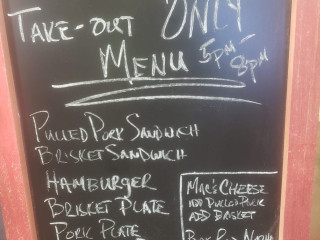 TAKE-OUT ONLY
MENU 5PM-8PM
PULLED PORK SANDWICH
BRISKET SANDWICH
HAMBURGER
BRISKET PLATE
PORK PLATE
MAC & CHEESE
ADD PULLED PORK
ADD BRISKET